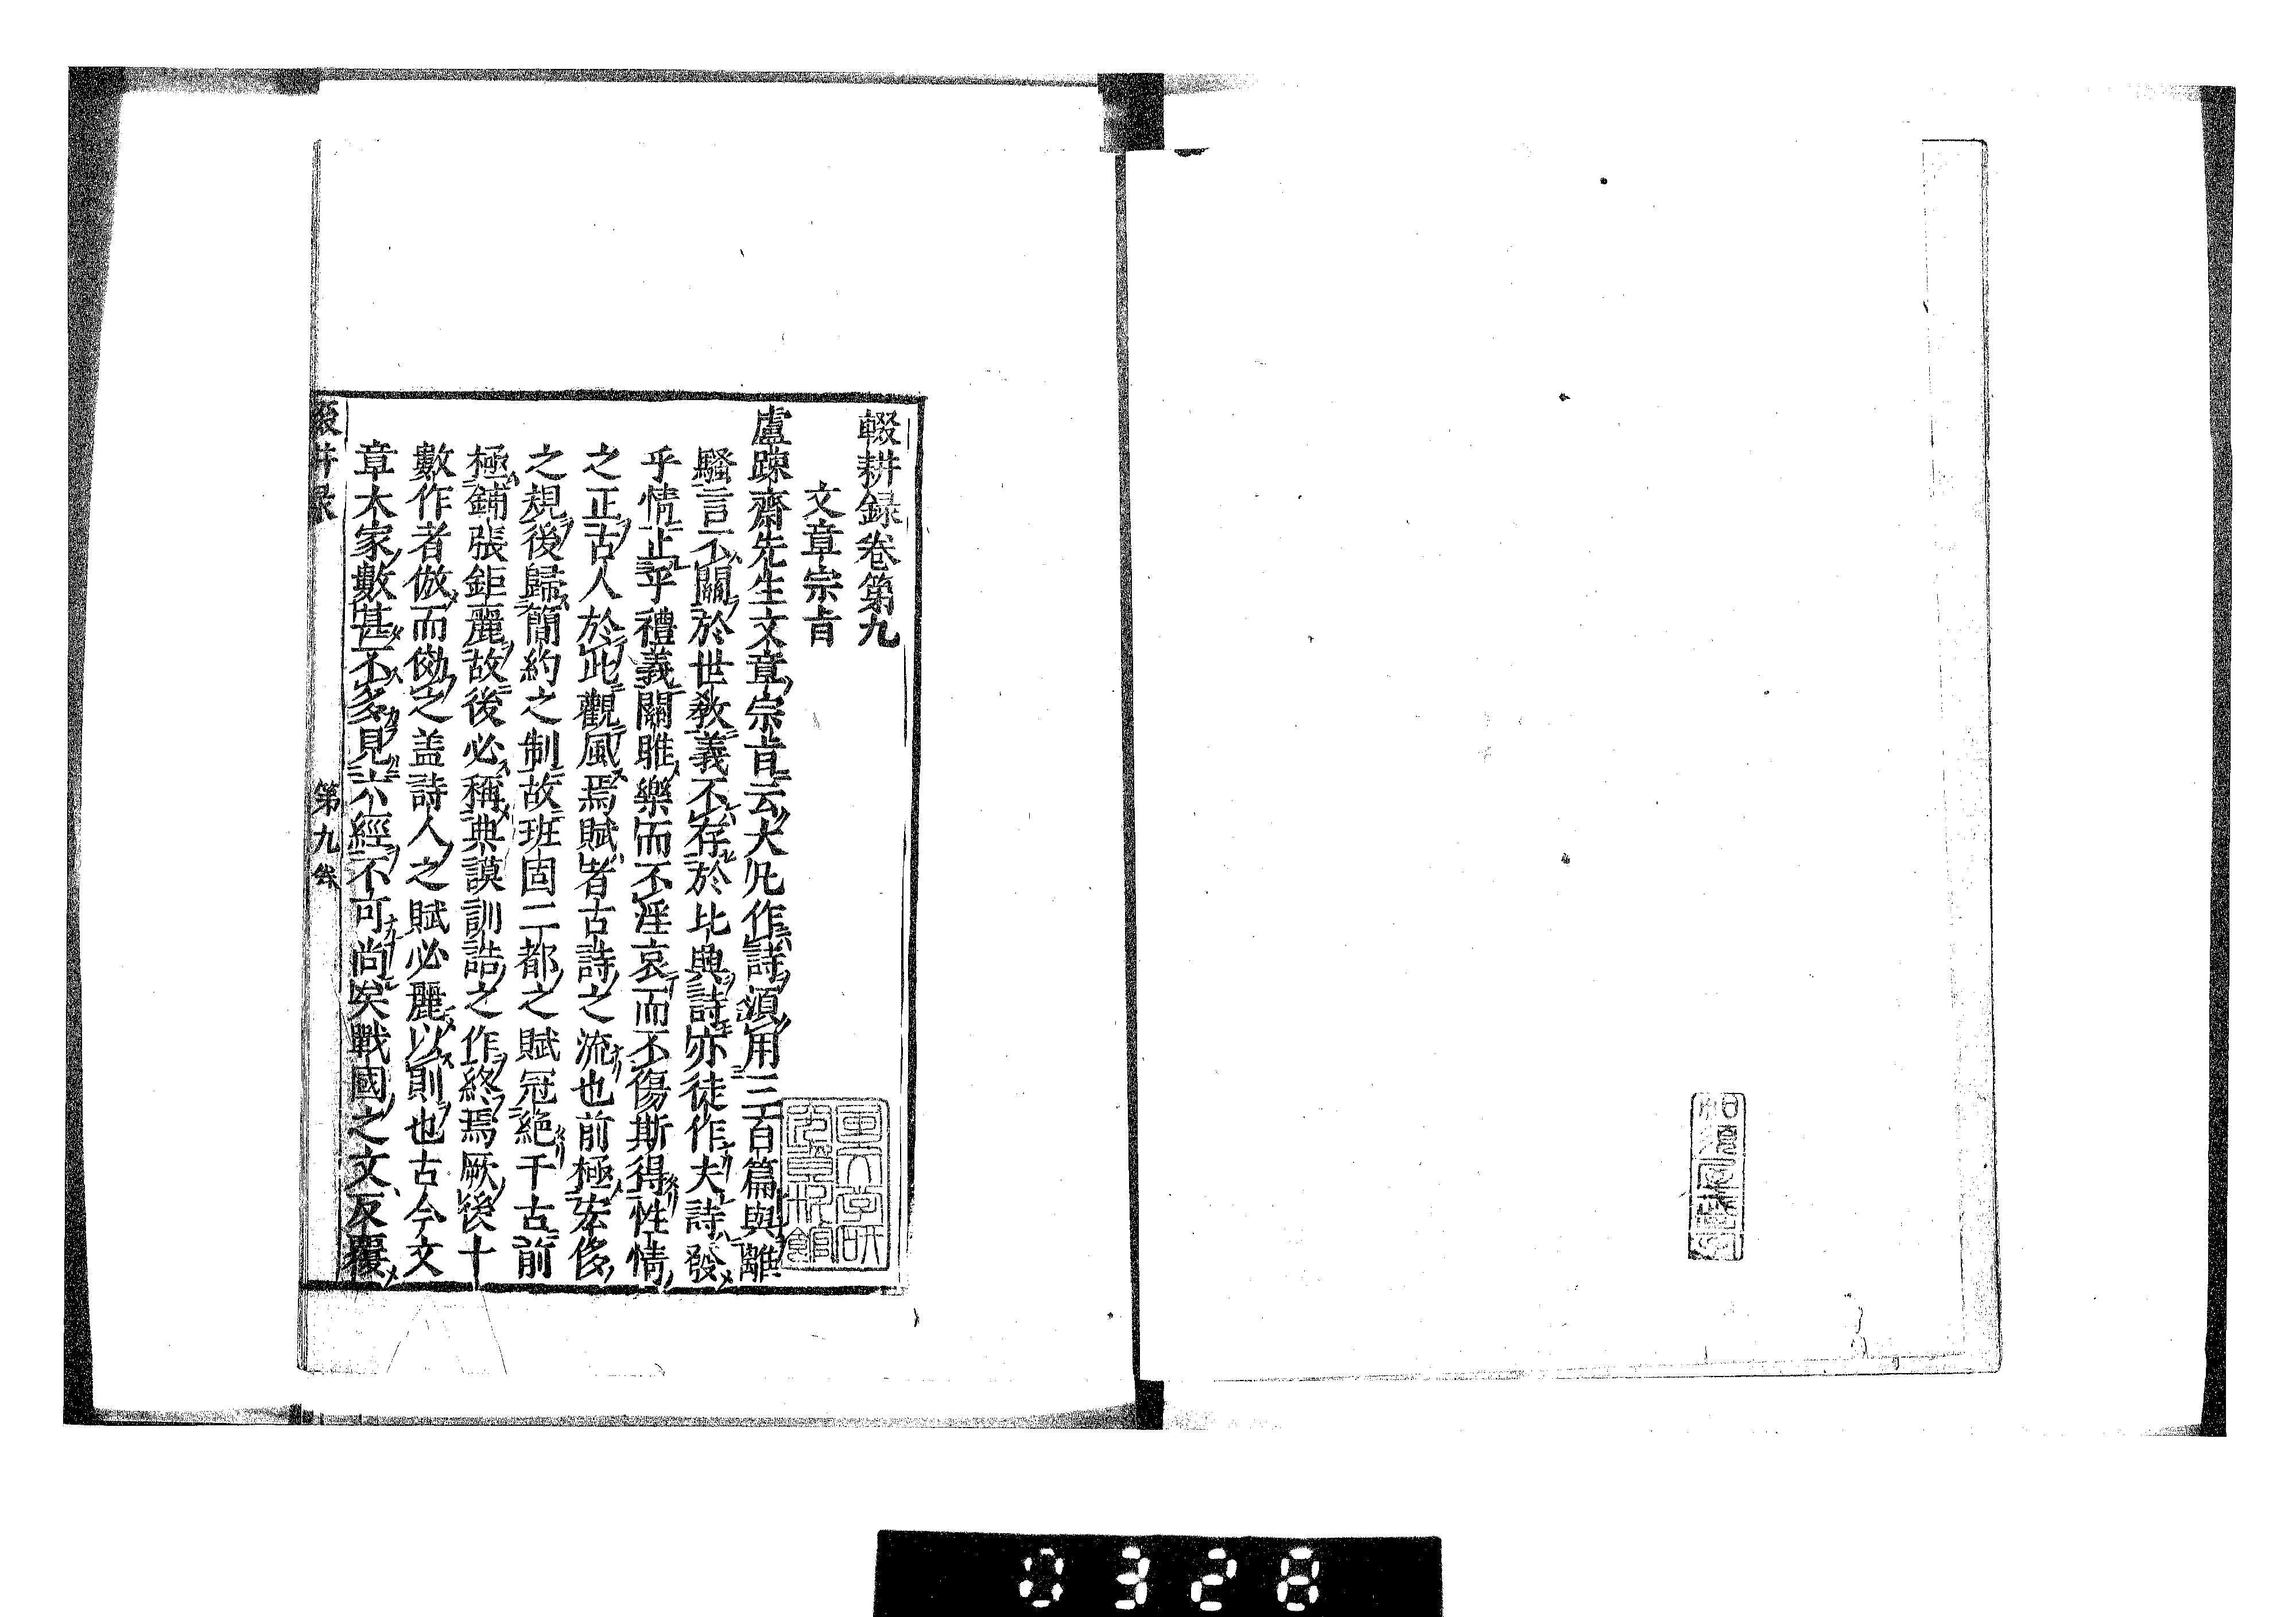 輟耕録卷第九
文章宗旨
盧踈齋先生文章宗旨云大凡作詩須用三百篇與離
騷言不關於世教義不存於比興詩亦徒作夫詩發
乎情止乎禮義關雎樂而不淫哀而不傷斯得性情
之正古人於此觀風焉賦者古詩之流也前極宏侈
之規後歸簡約之制故班固二都之賦冠絶千古前
極鋪張鉅麗故後必稱典謨訓誥之作終焉厥後十
數作者倣而傚之盖詩人之賦必麗以則也古今文
章大家數甚不多見六經不可尚矣戰國之文反覆
第九
0328